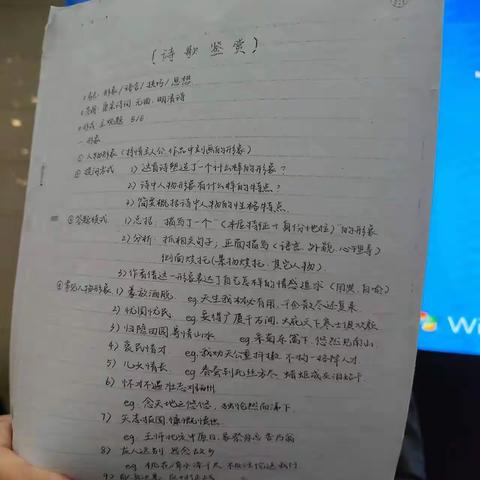 (诗歌鉴赏)
1.考点:形象/语言/技巧/思想
2.范围:唐宋诗词、元曲、明清诗
3.形式:主观题
一.形象
① 人物形象(抒情主人公 作品中刻画的形象)
② 提问方式 1) 这首诗塑造了一个什么样的形象?
2) 诗中人物形象有什么样的特点?
3) 简要概括诗中人物的性格特点.
③ 答题模式 1) 总括:描写了一个“(本质特征+身份地位)”的形象
2) 分析:抓相关句子,正面描写(语言、外貌、心理等)
侧面烘托(景物烘托、其它人物)
3) 作者借这一形象表达了自己怎样的情感追求
④ 常见人物形象 1) 豪放洒脱 eg. 天生我材必有用,千金散尽还复来.
2) 忧国忧民 eg. 安得广厦千万间,大庇天下寒士俱欢颜
3) 归隐田园寄情山水 eg. 采菊东篱下,悠然见南山.
4) 爱民惜才 eg. 我劝天公重抖擞,不拘一格降人才.
5) 儿女情长 eg. 春蚕到死丝方尽 蜡炬成灰泪始干
6) 怀才不遇壮志难酬
eg. 念天地之悠悠,独怆然而涕下.
7) 矢志报国、慷慨愤世
eg. 王师北定中原日,家祭无忘告乃翁
8) 友人送别 思念故乡
eg. 桃花潭水深千尺 不及汪伦送我情
Wi